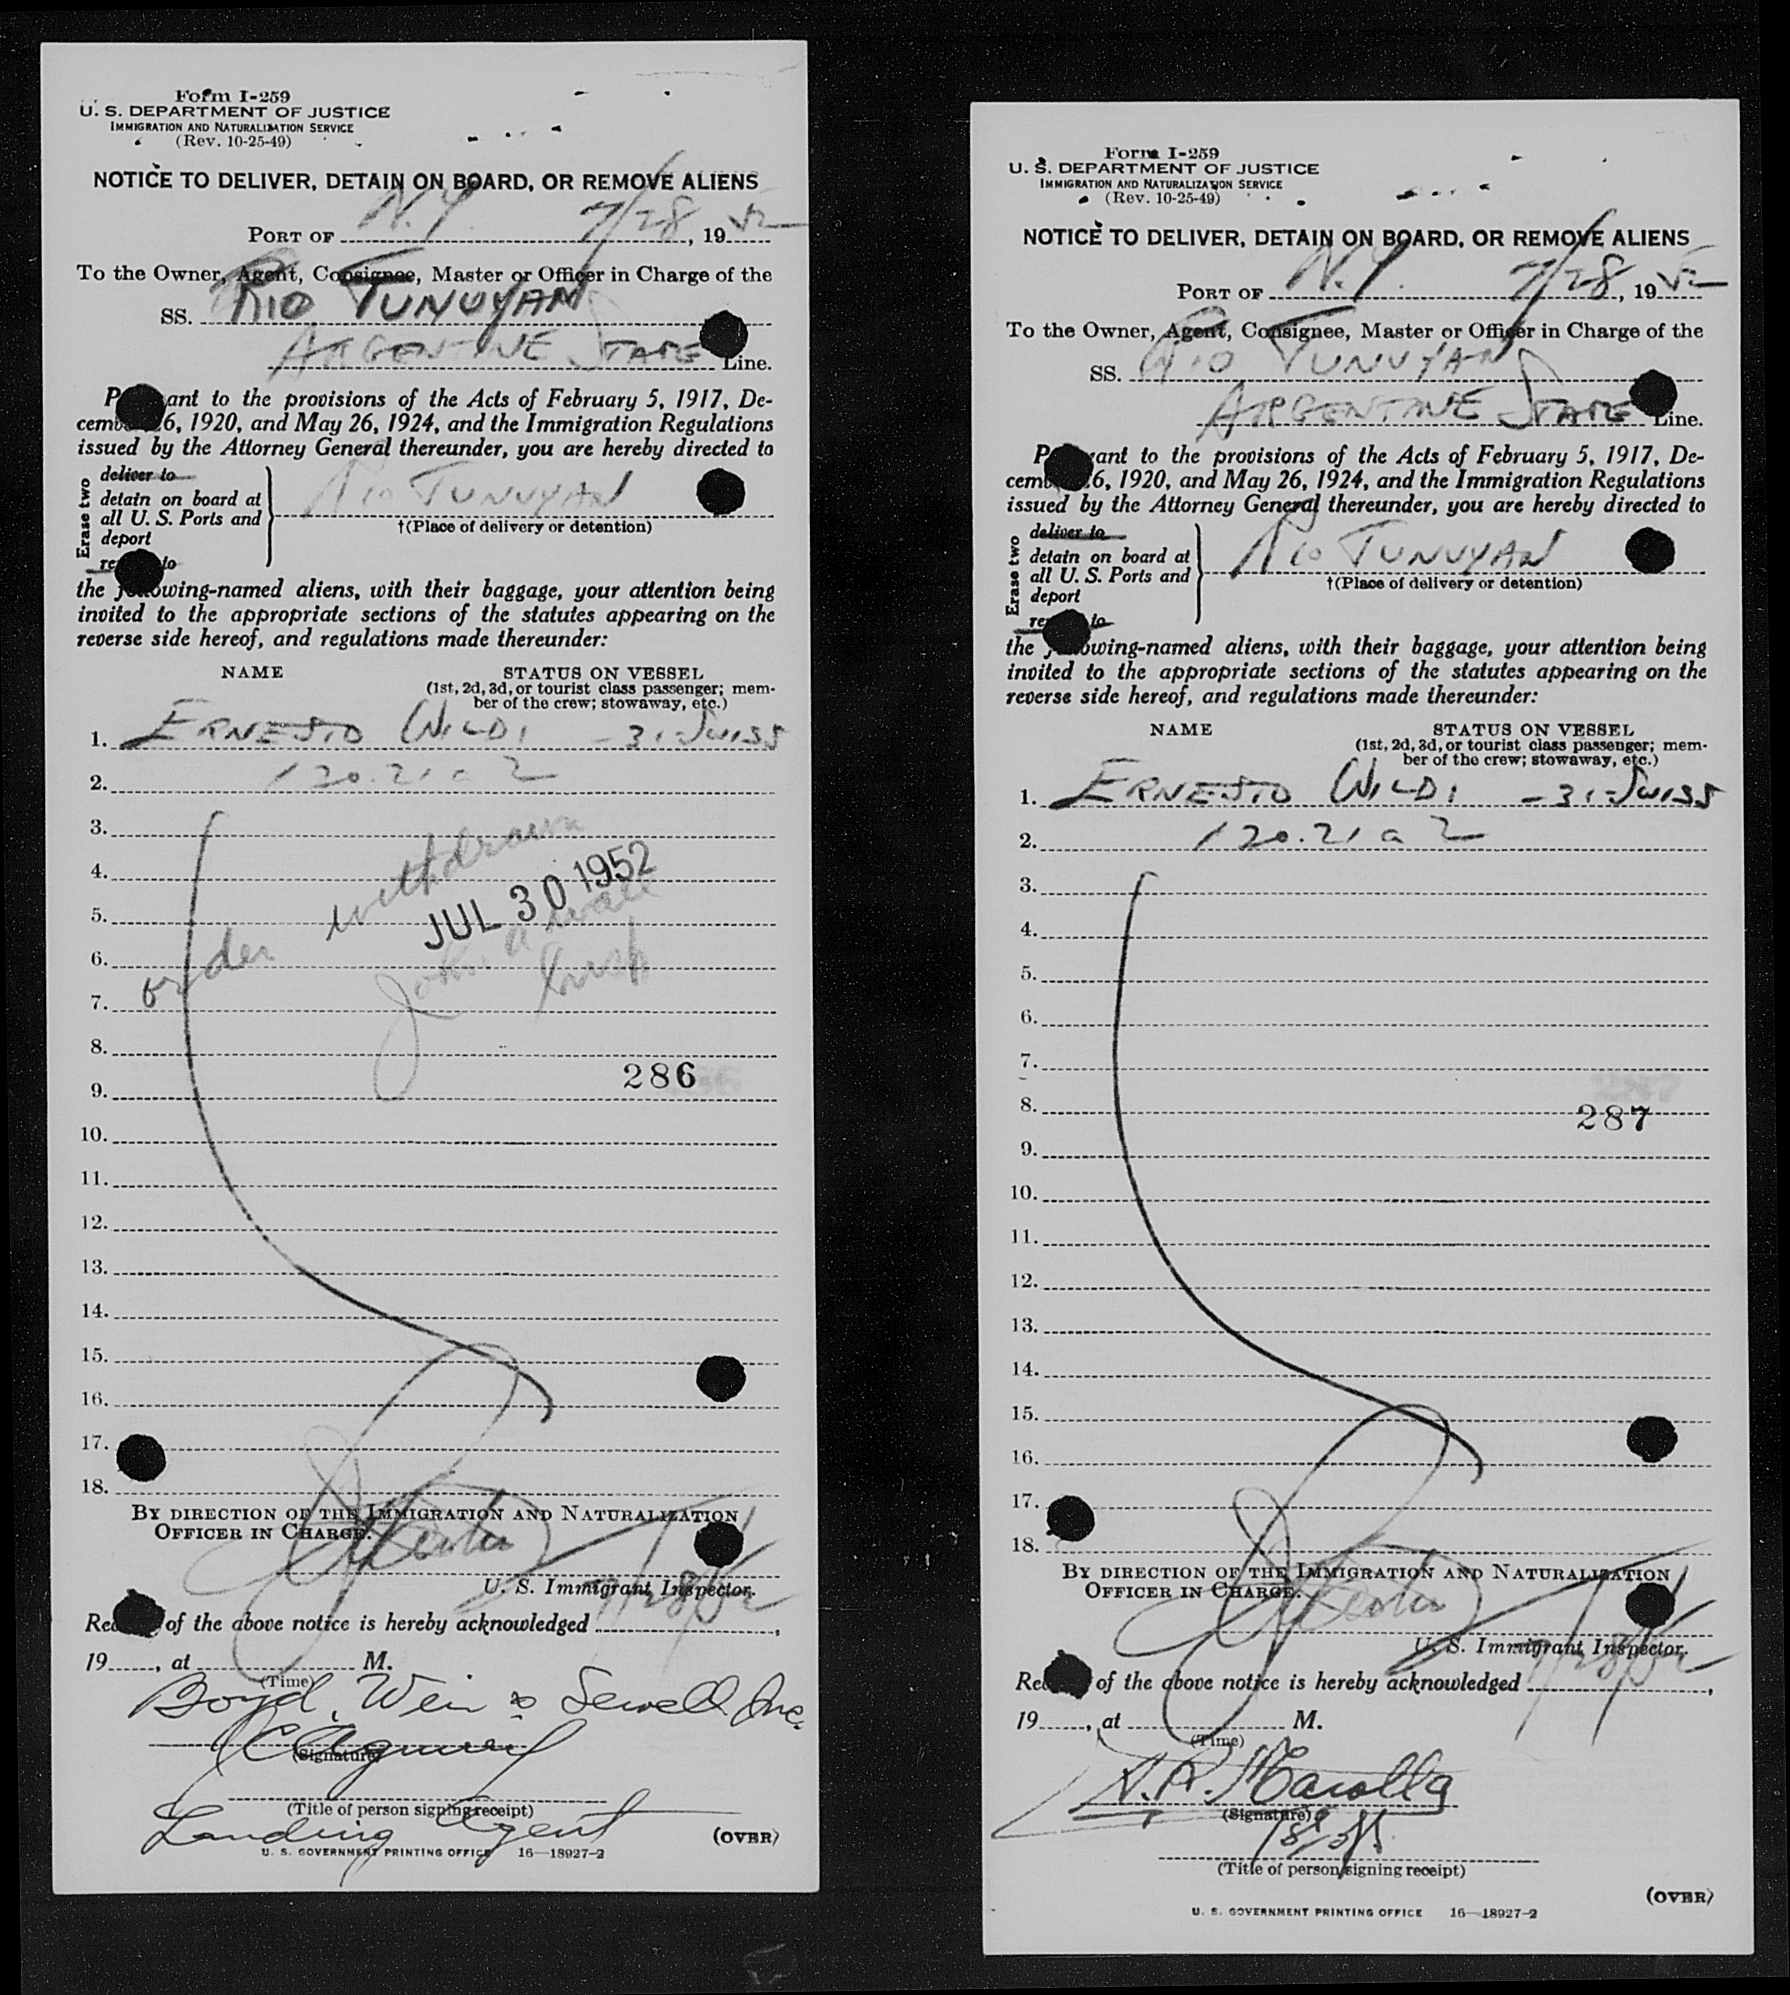 Form I-259
U. S. DEPARTMENT OF JUSTICE
IMMIGRATION AND NATURALIZATION SERVICE
(Rev. 10-25-49)
NOTICE TO DELIVER, DETAIN ON BOARD, OR REMOVE ALIENS
PORT OF N.Y. 7/28, 1952
To the Owner, Agent, Consignee, Master or Officer in Charge of the
SS. RIO TUNUYAN
ARGENTINE STATE Line.
P ant to the provisions of the Acts of February 5, 1917, De-
cemb 6, 1920, and May 26, 1924, and the Immigration Regulations
issued by the Attorney General thereunder, you are hereby directed to
Erase two
deliver to
detain on board at
all U. S. Ports and
deport
re to
RIO TUNUYAN
†(Place of delivery or detention)
the following-named aliens, with their baggage, your attention being
invited to the appropriate sections of the statutes appearing on the
reverse side hereof, and regulations made thereunder:
NAME STATUS ON VESSEL
(1st, 2d, 3d, or tourist class passenger; mem-
ber of the crew; stowaway, etc.)
1. ERNESTO WILDI - 31 - SWISS
2. 120.21 a 2
3.
4.
5.
6.
7.
8.
9.
10.
11.
12.
13.
14.
15.
16.
17.
18.
order withdrawn
JUL 30 1952
John a
Insp
286
BY DIRECTION OF THE IMMIGRATION AND NATURALIZATION
OFFICER IN CHARGE.
U. S. Immigrant Inspector.
7/28/52
Rec of the above notice is hereby acknowledged ,
19 , at M.
(Time)
Boyd, Weir & Sewell Inc.
(Signature)
(Title of person signing receipt)
Landing Agent
(OVER)
U. S. GOVERNMENT PRINTING OFFICE 16—18927-2
Form I-259
U. S. DEPARTMENT OF JUSTICE
IMMIGRATION AND NATURALIZATION SERVICE
(Rev. 10-25-49)
NOTICE TO DELIVER, DETAIN ON BOARD, OR REMOVE ALIENS
PORT OF N.Y. 7/28, 1952
To the Owner, Agent, Consignee, Master or Officer in Charge of the
SS. RIO TUNUYAN
ARGENTINE STATE Line.
P ant to the provisions of the Acts of February 5, 1917, De-
cemb 6, 1920, and May 26, 1924, and the Immigration Regulations
issued by the Attorney General thereunder, you are hereby directed to
Erase two
deliver to
detain on board at
all U. S. Ports and
deport
re to
RIO TUNUYAN
†(Place of delivery or detention)
the following-named aliens, with their baggage, your attention being
invited to the appropriate sections of the statutes appearing on the
reverse side hereof, and regulations made thereunder:
NAME STATUS ON VESSEL
(1st, 2d, 3d, or tourist class passenger; mem-
ber of the crew; stowaway, etc.)
1. ERNESTO WILDI - 31 - SWISS
2. 120.21 a 2
3.
4.
5.
6.
7.
8.
287
9.
10.
11.
12.
13.
14.
15.
16.
17.
18.
BY DIRECTION OF THE IMMIGRATION AND NATURALIZATION
OFFICER IN CHARGE.
U. S. Immigrant Inspector.
7/28/52
Rec of the above notice is hereby acknowledged ,
19 , at M.
(Time)
(Signature)
(Title of person signing receipt)
(OVER)
U. S. GOVERNMENT PRINTING OFFICE 16—18927-2